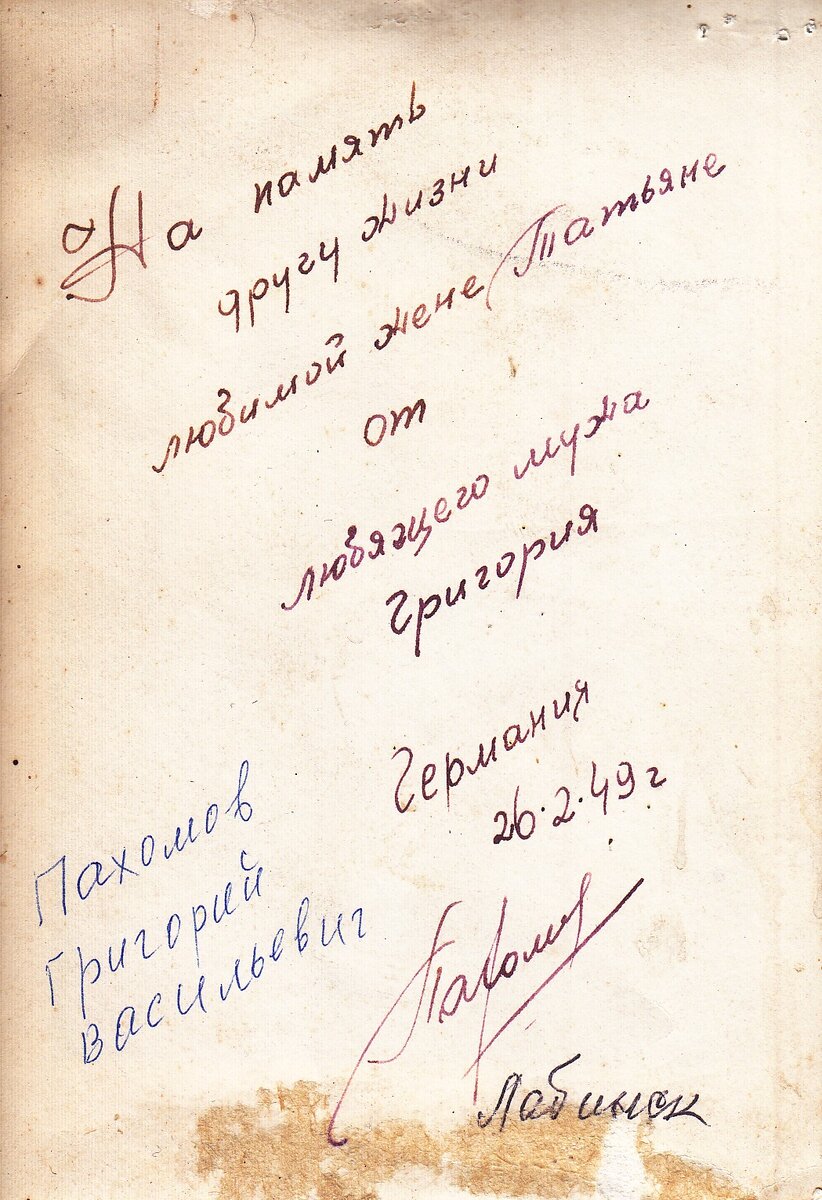 На память
другу жизни
любимой жене Татьяне
от
любящего мужа
Григория
Германия
26.2.49 г
Пахомов
Григорий
Васильевич
Пахомов
Лабинск